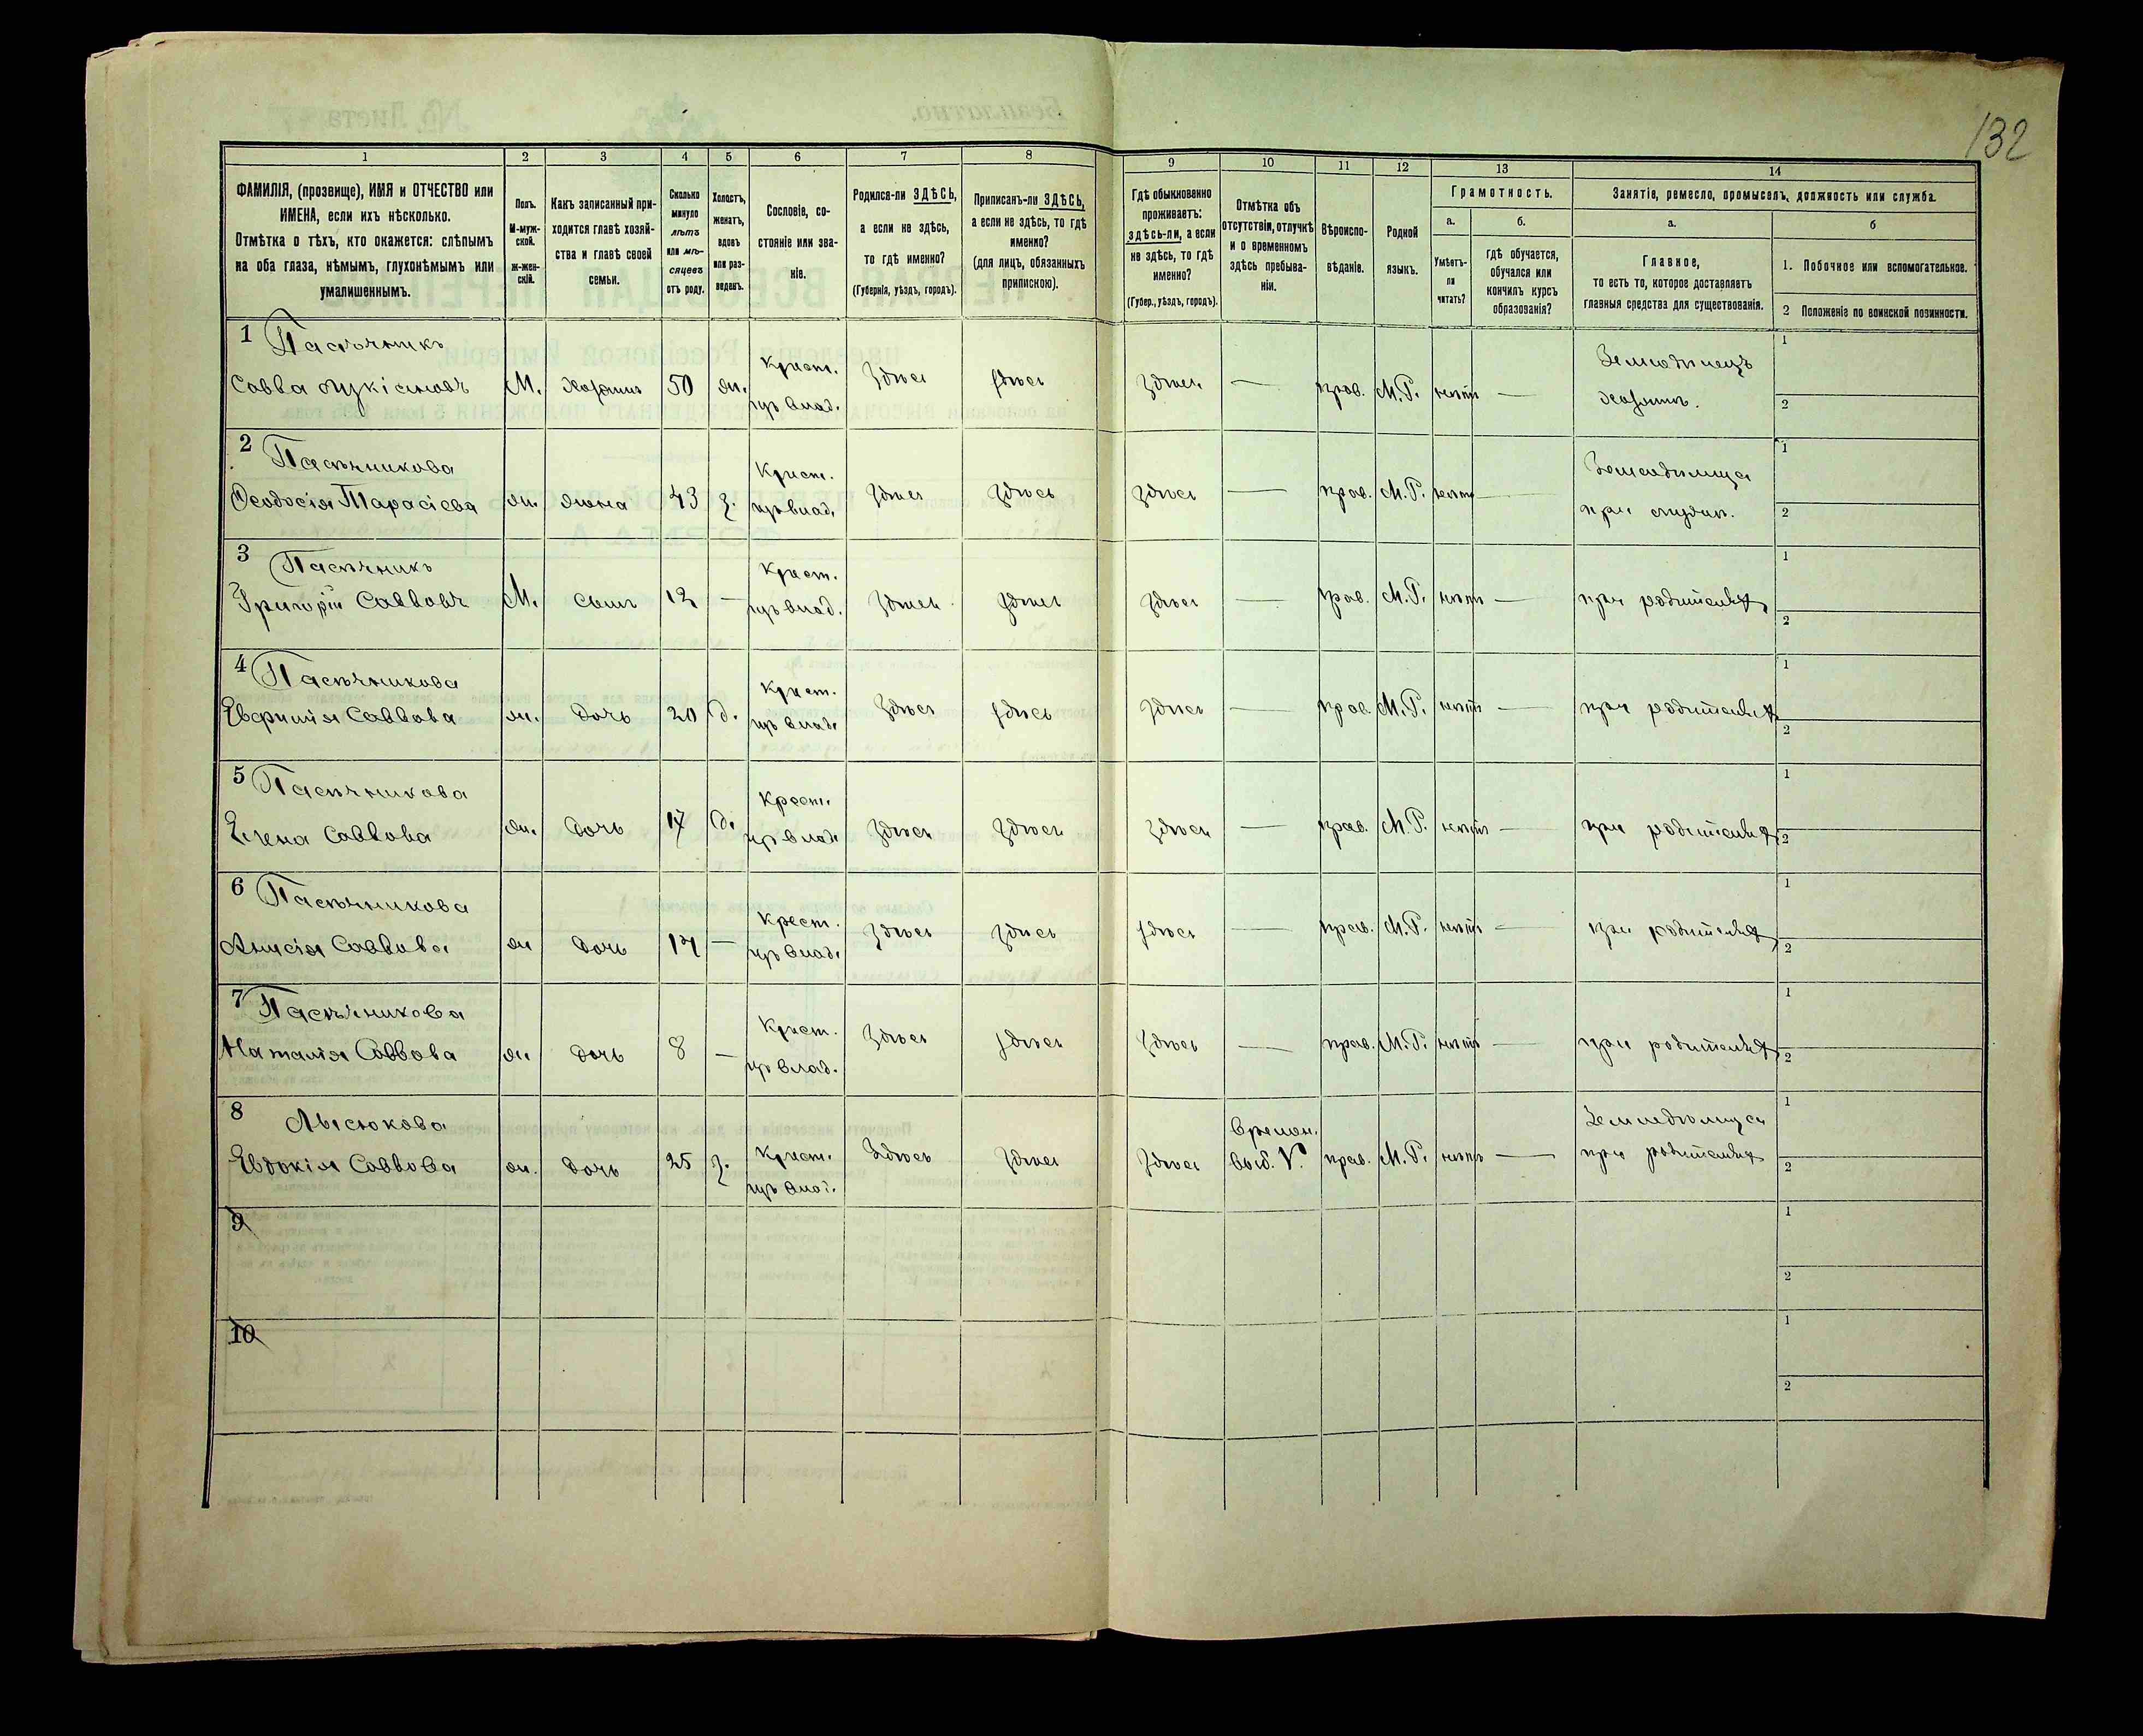 132
1 2 3 4 5 6 7 8 9 10 11 12 13 14
ФАМИЛІЯ, (прозвище), ИМЯ и ОТЧЕСТВО или
ИМЕНА, если ихъ нѣсколько.
Отмѣтка о тѣхъ, кто окажется: слѣпымъ
на оба глаза, нѣмымъ, глухонѣмымъ или
умалишеннымъ.
Полъ.
М-муж-
ской.
ж-жен-
скій.
Какъ записанный при-
ходится главѣ хозяй-
ства и главѣ своей
семьи.
Сколько
минуло
лѣтъ
или мѣ-
сяцевъ
отъ роду.
Холостъ,
женатъ,
вдовъ
или раз-
веденъ.
Сословіе, со-
стояніе или зва-
ніе.
Родился-ли ЗДѢСЬ,
а если не здѣсь,
то гдѣ именно?
(Губернія, уѣздъ, городъ).
Приписанъ-ли ЗДѢСЬ,
а если не здѣсь, то гдѣ
именно?
(для лицъ, обязанныхъ
припискою).
Гдѣ обыкновенно
проживаетъ:
здѣсь-ли, а если
не здѣсь, то гдѣ
именно?
(Губер., уѣздъ, городъ).
Отмѣтка объ
отсутствіи, отлучкѣ
и о временномъ
здѣсь пребыва-
ніи.
Вѣроиспо-
вѣданіе.
Родной
языкъ.
Грамотность.
а.
Умѣетъ-
ли
читать?
б.
гдѣ обучается,
обучался или
кончилъ курсъ
образованія?
Занятіе, ремесло, промыселъ, должность или служба.
а.
Главное,
то есть то, которое доставляетъ
главныя средства для существованія.
б
1. Побочное или вспомогательное.
2 Положеніе по воинской повинности.
1 Пасѣчникъ
Савва Лукіановъ М. хозяинъ 50 ж. Крест. изъ влад. Здѣсь здѣсь Здѣсь — прав. М.Р. нѣтъ — Земледѣлецъ хозяинъ. 1 2
2 Пасѣчникова
Ѳеодосія Тарасіева ж. жена 43 з. Крест. изъ влад. Здѣсь Здѣсь Здѣсь — прав. М.Р. нѣтъ — Земледѣлица при мужѣ. 1 2
3 Пасѣчникъ
Григорій Саввовъ М. сынъ 12 — Крест. изъ влад. Здѣсь здѣсь Здѣсь — прав. М.Р. нѣтъ — при родителяхъ 1 2
4 Пасѣчникова
Евфимія Саввова ж. дочь 20 д. Крест. изъ влад. Здѣсь здѣсь Здѣсь — прав. М.Р. нѣтъ — при родителяхъ 1 2
5 Пасѣчникова
Елена Саввова ж. дочь 17 д. Крест. изъ влад. Здѣсь Здѣсь Здѣсь — прав. М.Р. нѣтъ — при родителяхъ 1 2
6 Пасѣчникова
Анисія Саввова ж дочь 14 — Крест. изъ влад. Здѣсь Здѣсь здѣсь — прав. М.Р. нѣтъ — при родителяхъ 1 2
7 Пасѣчникова
Наталія Саввова ж дочь 8 — Крест. изъ влад. Здѣсь здѣсь Здѣсь — прав. М.Р. нѣтъ — при родителяхъ 1 2
8 Лысюкова
Евдокія Саввова ж. дочь 25 з. Крест. изъ влад. Здѣсь Здѣсь Здѣсь Времен. прав. М.Р. нѣтъ — Земледѣлица при родителяхъ 1 2
9 1 2
10 1 2